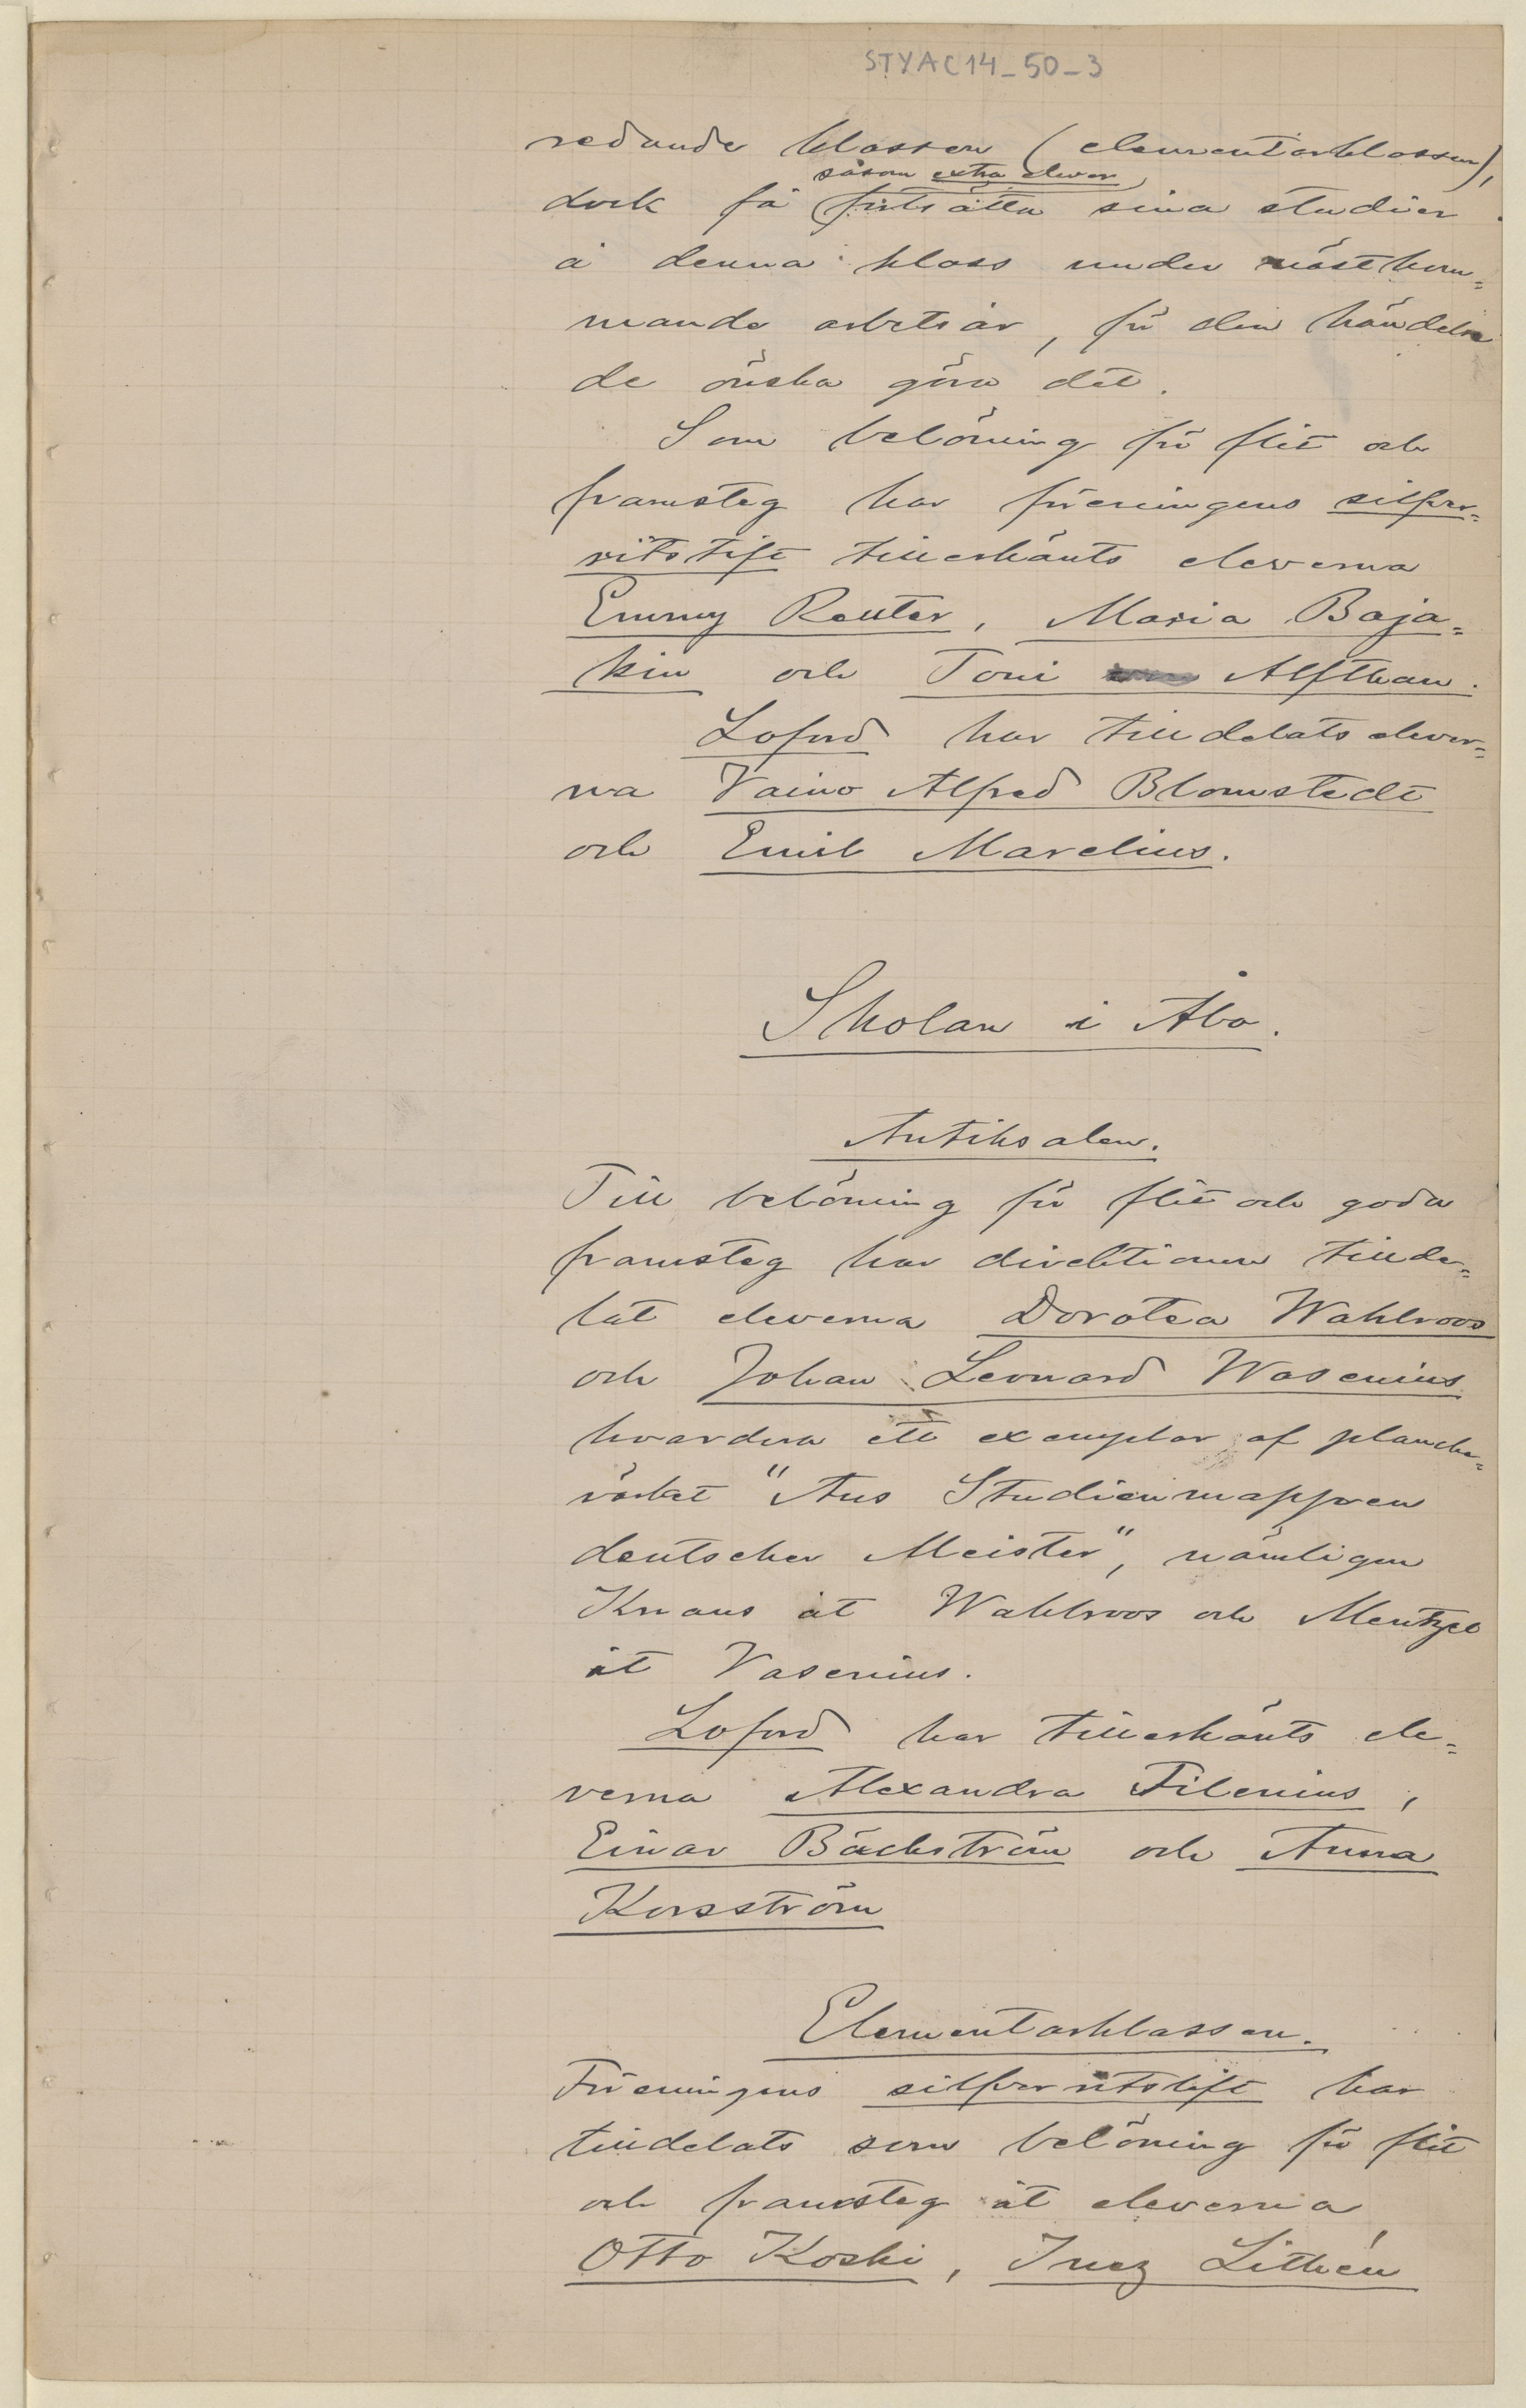 STYAC14_50_3
redande klassen (elementarklassen),
såsom extra elever
dock få fortsätta sina studier
å denna klass under nästkom=
mande arbetsår, för den händelse
de önska göra det.
Som belöning för flit och
framsteg har föreningens silfver=
ritstift tillerkänts eleverna
Emmy Reuter, Maria Baja=
kin och Toni Alfthan.
Loford har tilldelats elever=
na Vaino Alfred Blomstedt
och Emil Marelius.
Skolan i Åbo.
Antiksalen.
Till belöning för flit och goda
framsteg har direktionen tillde=
lat eleverna Dorotea Wahlroos
och Johan Leonard Wasenius
hvardera ett exemplar af planch=
värket "Aus Studienmappen
deutscher Meister", nämligen
Knaus åt Wahlroos och Mentzel
åt Vasenius.
Loford har tillerkänts ele=
verna Alexandra Filenius,
Einar Bäckström och Anna
Korsström
Elementarklassen.
Föreningens silfverritstift har
tilldelats som belöning för flit
och framsteg åt eleverna
Otto Koski, Inez Lithén